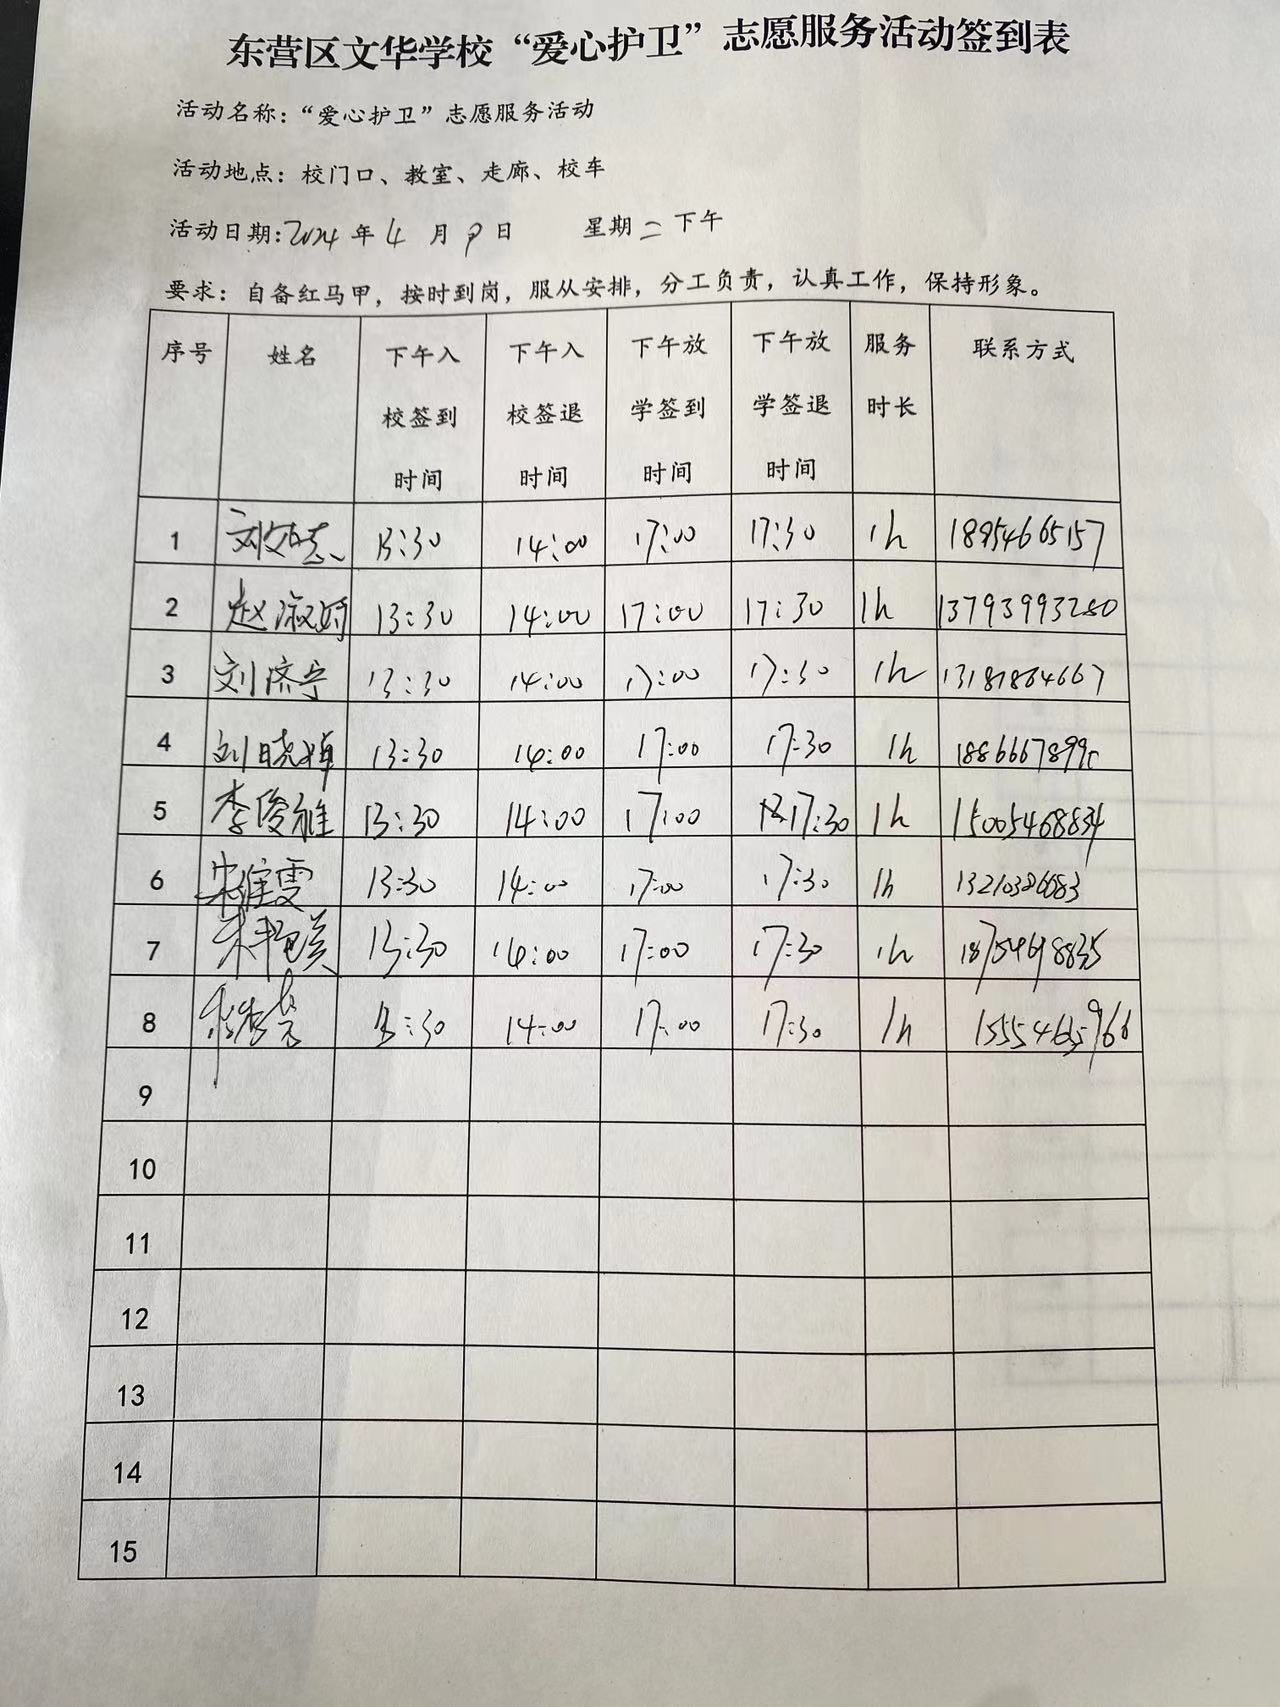 东营区文华学校“爱心护卫”志愿服务活动签到表
活动名称：“爱心护卫”志愿服务活动
活动地点：校门口、教室、走廊、校车
活动日期:2024年4月9日 星期二下午
要求：自备红马甲，按时到岗，服从安排，分工负责，认真工作，保持形象。
序号 姓名 下午入校签到时间 下午入校签退时间 下午放学签到时间 下午放学签退时间 服务时长 联系方式
1 13:30 14:00 17:00 17:30 1h 18954665157
2 赵淑婷 13:30 14:00 17:00 17:30 1h 13793993280
3 刘济宁 13:30 14:00 17:00 17:30 1h 13181864667
4 刘晓婷 13:30 14:00 17:00 17:30 1h
5 李俊雅 13:30 14:00 17:00 17:30 1h 15005468834
6 13:30 14:00 17:00 17:30 1h
7 13:30 14:00 17:00 17:30 1h
8 13:30 14:00 17:00 17:30 1h
9
10
11
12
13
14
15